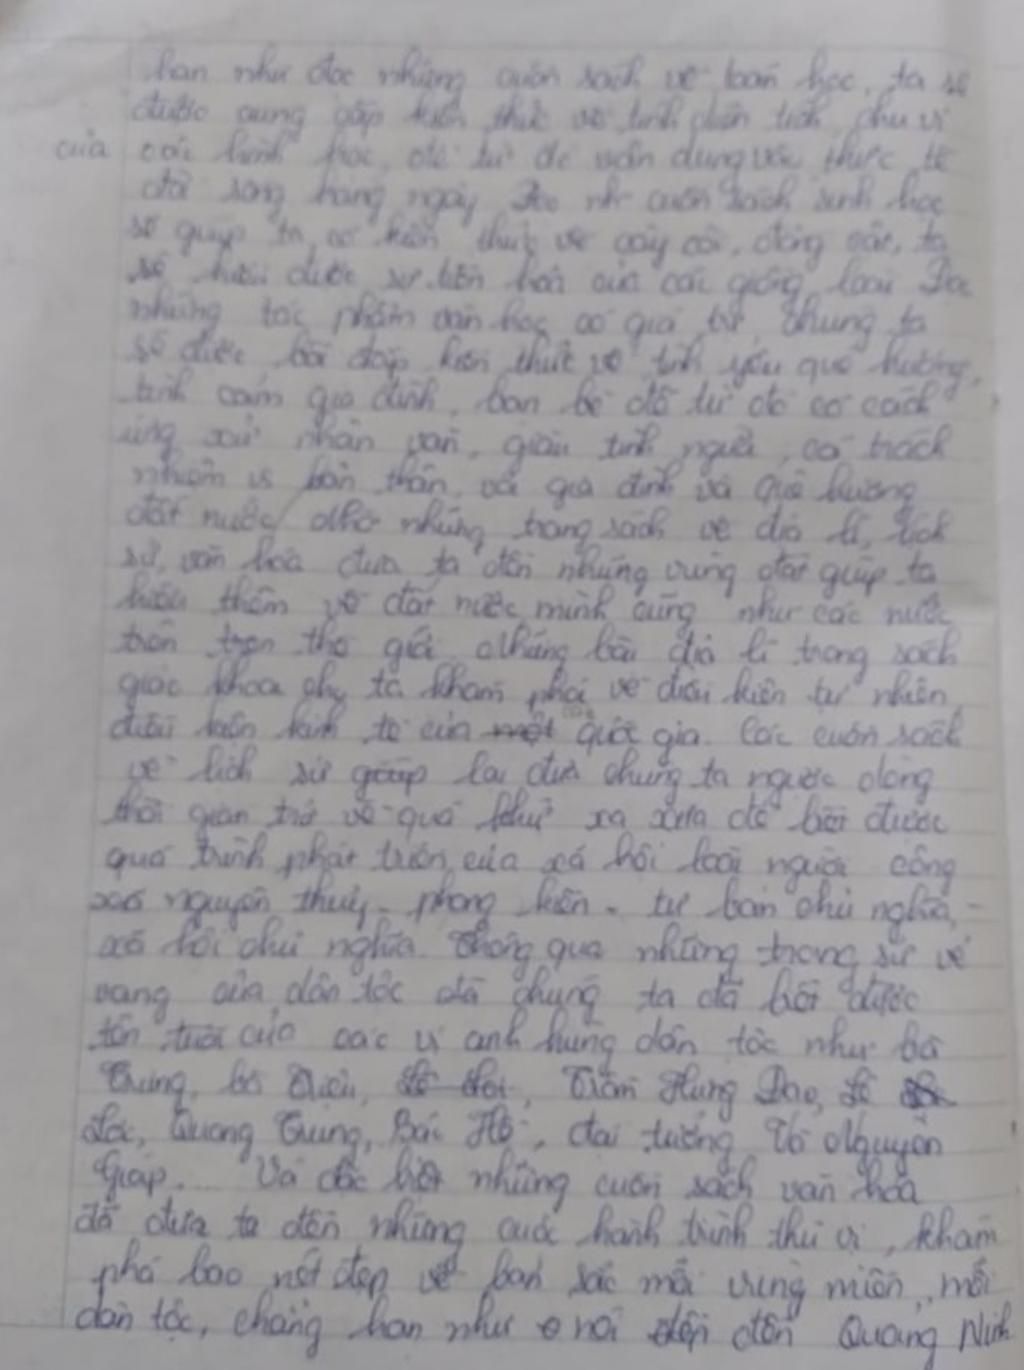 hạn như đọc những cuốn sách về toán học, ta sẽ
được cung cấp kiến thức về tính diện tích, chu vi
của các hình học, để từ đó vận dụng vào thực tế
đời sống hàng ngày. Đọc cuốn sách sinh học
sẽ giúp ta có kiến thức về cây cối, động vật, ta
sẽ hiểu được sự tiến hóa của các giống loài. Đọc
những tác phẩm văn học có giá trị, chúng ta
sẽ được bồi đắp kiến thức về tình yêu quê hương,
tình cảm gia đình, bạn bè để từ đó có cách
ứng xử nhân văn, giàu tình người, có trách
nhiệm với bản thân, với gia đình và quê hương
đất nước. Nhờ những trang sách về địa lí, lịch
sử, văn hóa đưa ta đến những vùng đất giúp ta
hiểu thêm về đất nước mình cũng như các nước
trên thế giới. Những bài địa lí trong sách
giáo khoa cho ta khám phá về điều kiện tự nhiên,
điều kiện kinh tế của các quốc gia. Các cuốn sách
về lịch sử giúp lại đưa chúng ta ngược dòng
thời gian trở về quá khứ xa xưa để biết được
quá trình phát triển của xã hội loài người công
xã nguyên thủy - phong kiến - tư bản chủ nghĩa -
xã hội chủ nghĩa. Thông qua những trang sử vẻ
vang của dân tộc đã chúng ta đã biết được
tên tuổi của các vị anh hùng dân tộc như bà
Trưng, bà Triệu, Trần Hưng Đạo, Lê
Lợi, Quang Trung, Bác Hồ, đại tướng Võ Nguyên
Giáp.... Và đặc biệt những cuốn sách văn hóa
đã đưa ta đến những cuộc hành trình thú vị, khám
phá bao nét đẹp về bản sắc mỗi vùng miền, mỗi
dân tộc, chẳng hạn như nói đến Quảng Ninh